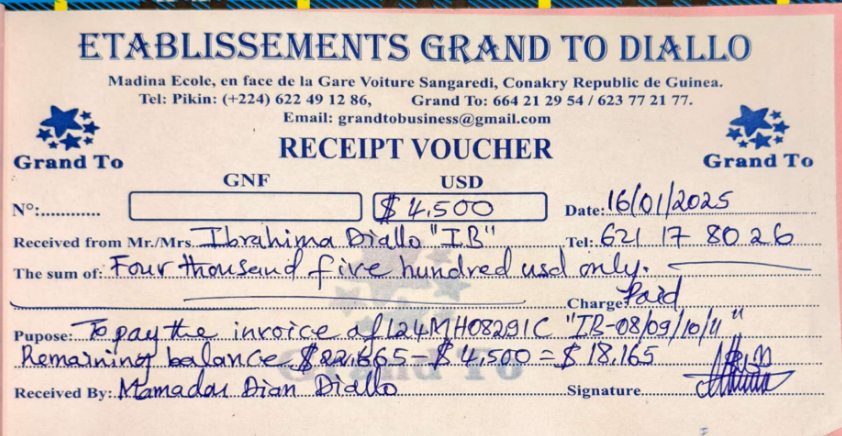 ETABLISSEMENTS GRAND TO DIALLO
Madina Ecole, en face de la Gare Voiture Sangaredi, Conakry Republic de Guinea.
Tel: Pikin: (+224) 622 49 12 86, Grand To: 664 21 29 54 / 623 77 21 77.
Email: grandtobusiness@gmail.com
Grand To RECEIPT VOUCHER Grand To
GNF USD
N°:............ $ 4.500 Date: 16/01/2025
Received from Mr./Mrs. Ibrahima Diallo "IB" Tel: 621 17 80 26
The sum of: Four thousand five hundred usd only.
Charge Paid
Pupose: To pay the invoice of L24MH08291C "IB-08/09/10/11"
Remaining balance $22,665 - $4,500 = $18,165
Grand To
Received By: Mamadou Dian Diallo Signature